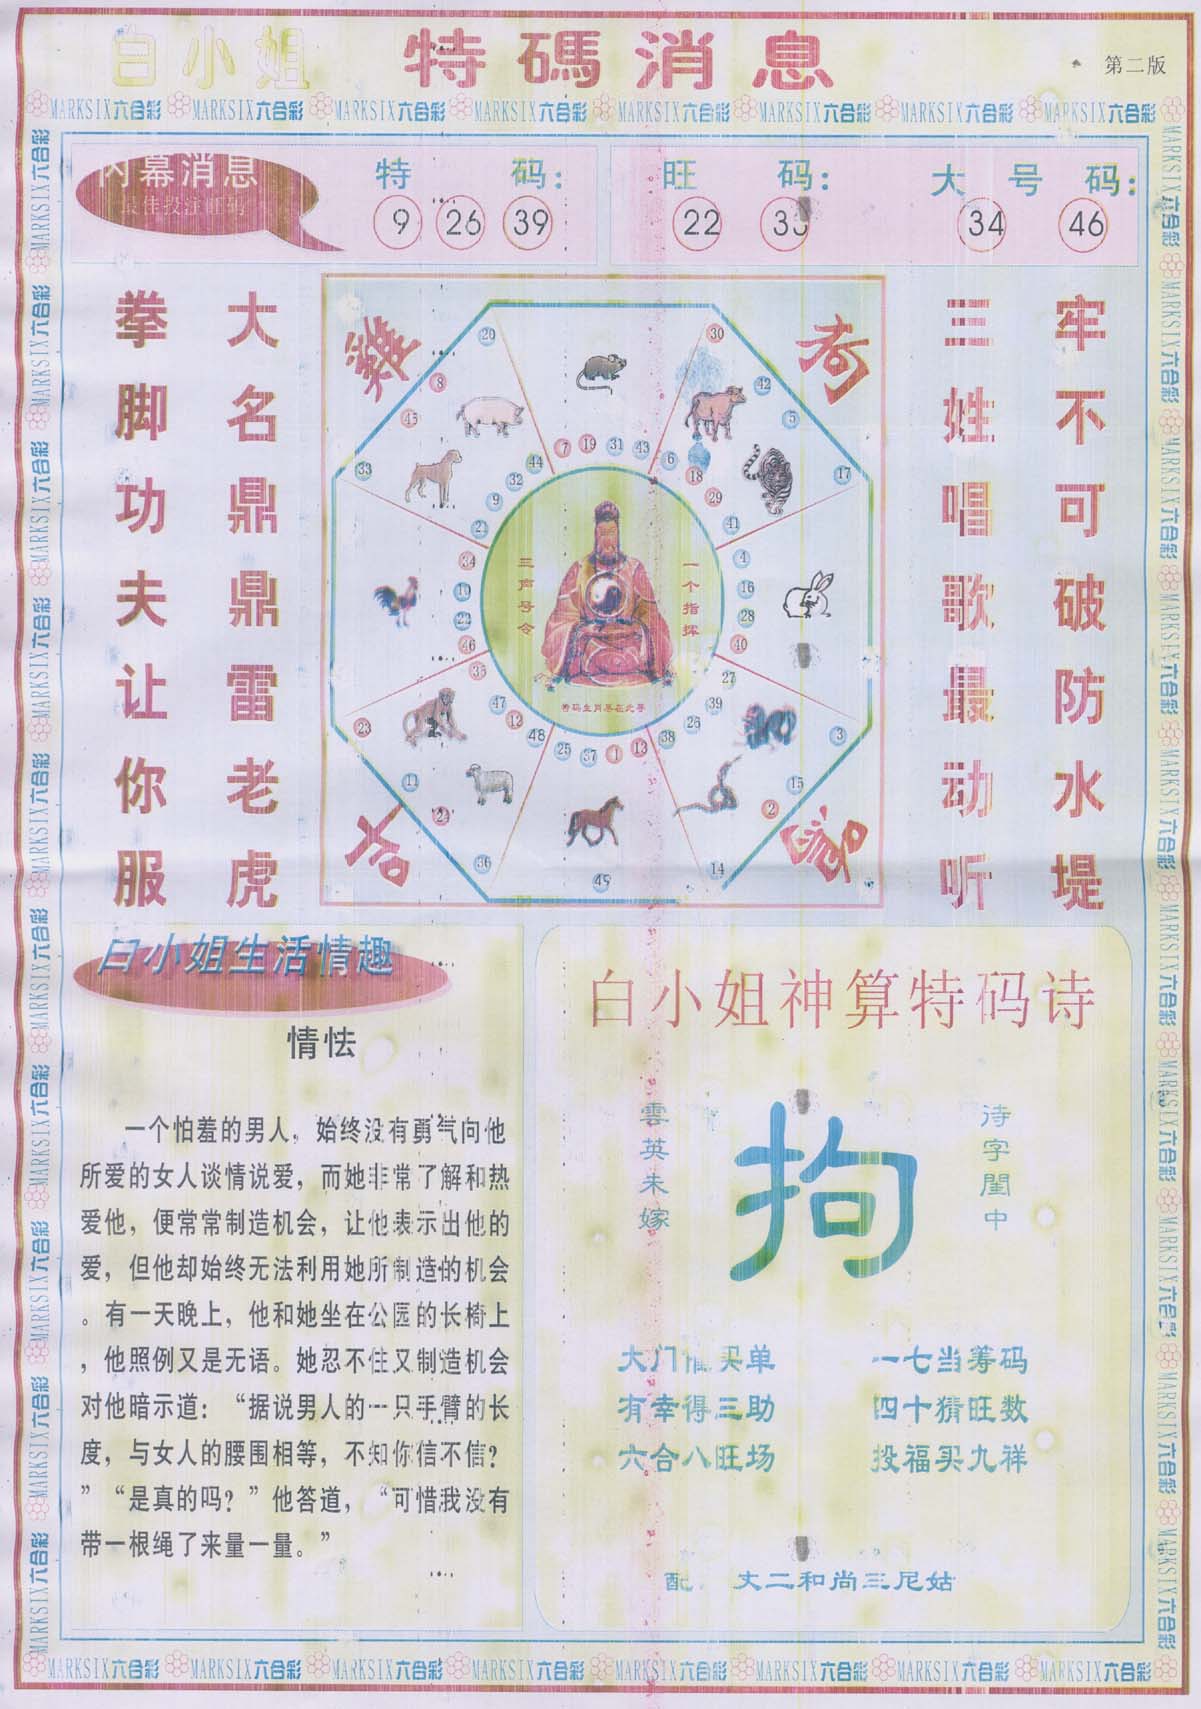 白小姐 特碼消息
第二版
MARKSIX六合彩 MARKSIX六合彩 MARKSIX六合彩 MARKSIX六合彩 MARKSIX六合彩 MARKSIX六合彩 MARKSIX六合彩 MARKSIX六合彩
内幕消息
最佳投注旺码
特 码:
9 26 39
旺 码:
22
大 号 码:
34 46
大名鼎鼎雷老虎
拳脚功夫让你服
牢不可破防水堤
三姓唱歌最动听
20
30
8
42
45
5
33
17
44 7 19 31 43 6
32 18
9 29
21 41
34 4
10 16
22 28
46 40
35 27
47 39
12 26
48 25 37 1 13 38
23
3
11
15
24
2
36
14
49
一个指挥
三声号令
特码生肖尽在此寻
白小姐生活情趣
情怯
一个怕羞的男人，始终没有勇气向他
所爱的女人谈情说爱，而她非常了解和热
爱他，便常常制造机会，让他表示出他的
爱，但他却始终无法利用她所制造的机会
。有一天晚上，他和她坐在公园的长椅上
，他照例又是无语。她忍不住又制造机会
对他暗示道：“据说男人的一只手臂的长
度，与女人的腰围相等，不知你信不信？
”“是真的吗？”他答道，“可惜我没有
带一根绳了来量一量。”
白小姐神算特码诗
待字閨中
雲英未嫁
拘
大门 买单 一七当筹码
有幸得三助 四十猜旺数
六合八旺场 投福买九祥
配 丈二和尚三尼姑
MARKSIX六合彩 MARKSIX六合彩 MARKSIX六合彩 MARKSIX六合彩 MARKSIX六合彩 MARKSIX六合彩 MARKSIX六合彩 MARKSIX六合彩